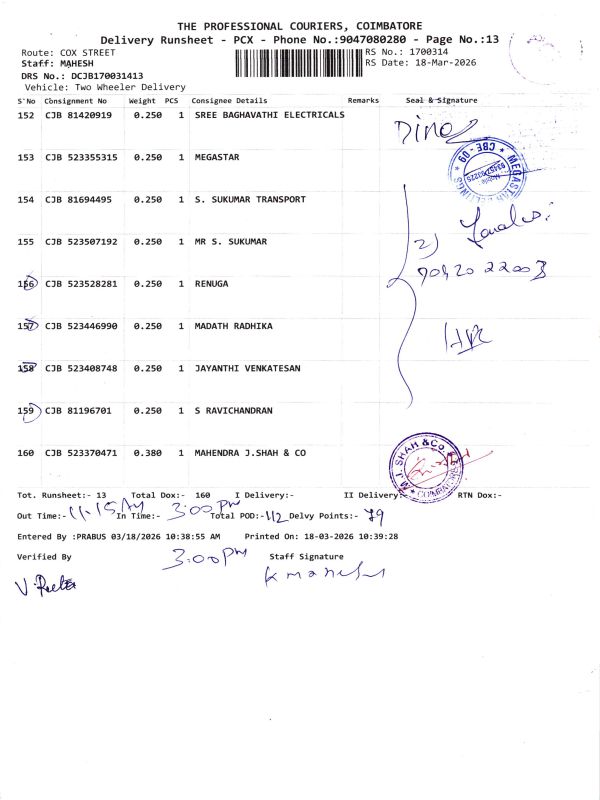 THE PROFESSIONAL COURIERS, COIMBATORE
Delivery Runsheet - PCX - Phone No.:9047080280 - Page No.:13
Route: COX STREET RS No.: 1700314
Staff: MAHESH RS Date: 18-Mar-2026
DRS No.: DCJB170031413
Vehicle: Two Wheeler Delivery
S'No Consignment No Weight PCS Consignee Details Remarks Seal & Signature
152 CJB 81420919 0.250 1 SREE BAGHAVATHI ELECTRICALS
153 CJB 523355315 0.250 1 MEGASTAR
154 CJB 81694495 0.250 1 S. SUKUMAR TRANSPORT
155 CJB 523507192 0.250 1 MR S. SUKUMAR
2)
156 CJB 523528281 0.250 1 RENUGA
157 CJB 523446990 0.250 1 MADATH RADHIKA
158 CJB 523408748 0.250 1 JAYANTHI VENKATESAN
159 CJB 81196701 0.250 1 S RAVICHANDRAN
160 CJB 523370471 0.380 1 MAHENDRA J.SHAH & CO
M.J. SHAH & CO. * COIMBATORE *
Tot. Runsheet:- 13 Total Dox:- 160 I Delivery:- II Delivery:- RTN Dox:-
Out Time:- 11-15AM In Time:- 3:00PM Total POD:- 112 Delvy Points:- 79
Entered By :PRABUS 03/18/2026 10:38:55 AM Printed On: 18-03-2026 10:39:28
Verified By 3:00PM Staff Signature